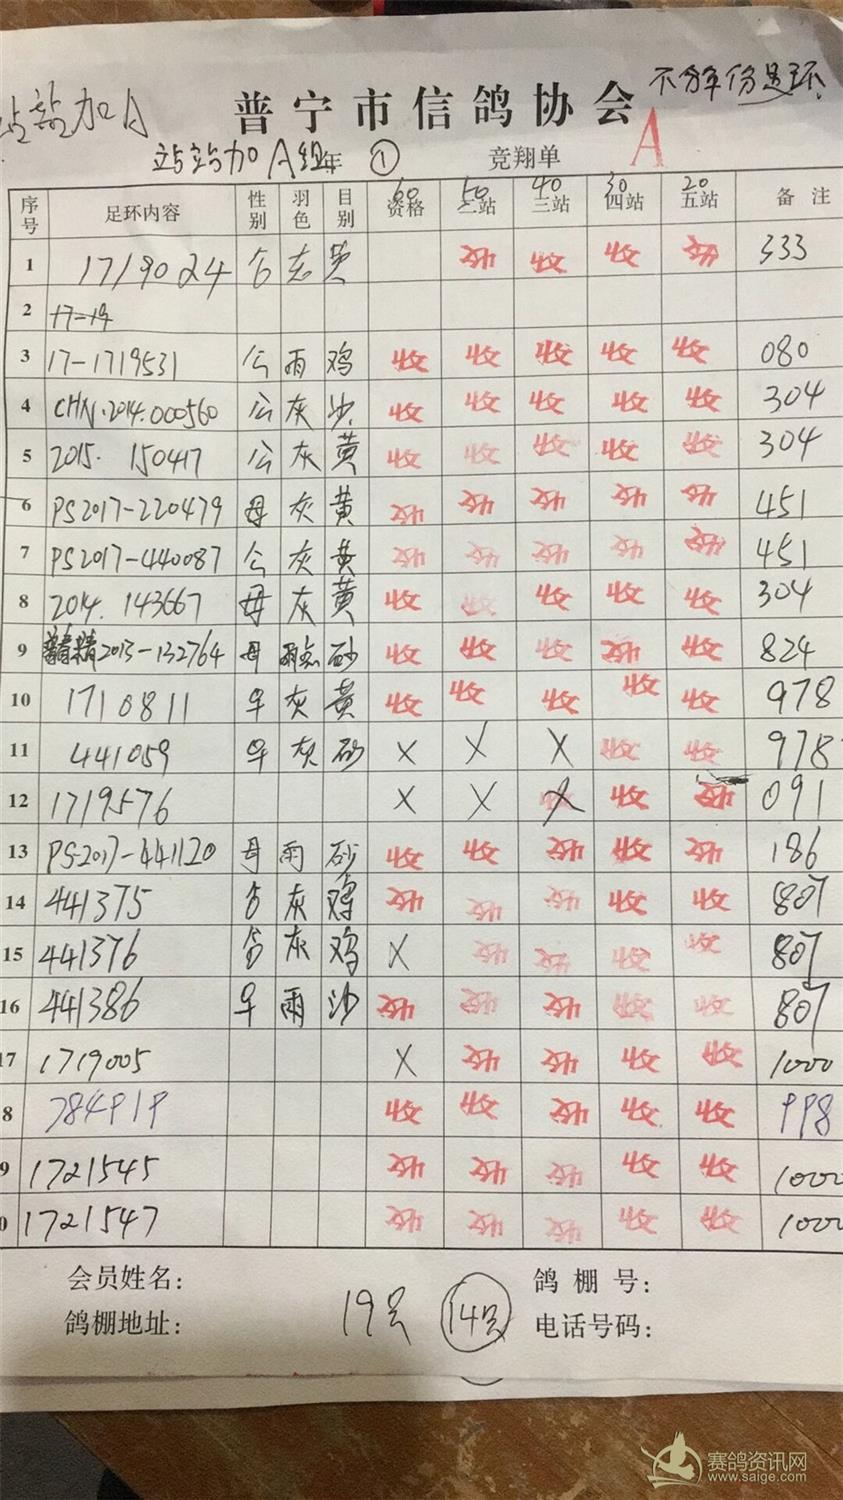 站站加A 普宁市信鸽协会 不分年份足环
站站加A组年 ① 竞翔单 A
60 50 40 30 20
序号 足环内容 性别 羽色 目别 资格 二站 三站 四站 五站 备注
1 1719024 收 收 收 收 333
2 17-19
3 17-1719531 公 雨 鸡 收 收 收 收 收 080
4 CHN.2014.000560 公 灰 沙 收 收 收 收 收 304
5 2015. 150417 公 灰 黄 收 收 收 收 收 304
6 PS2017-220479 母 灰 黄 收 收 收 收 收 451
7 PS2017-440087 公 灰 黄 收 收 收 收 收 451
8 2014. 143667 母 灰 黄 收 收 收 收 收 304
9 2013-132764 母 雨点 砂 收 收 收 收 收 824
10 1710811 灰 黄 收 收 收 收 收 978
11 441059 灰 砂 X X X 收 收 978
12 1719576 X X X 收 收 091
13 PS-2017-441120 母 雨 砂 收 收 收 收 收 186
14 441375 灰 鸡 收 收 收 收 收 807
15 441376 灰 鸡 X 收 收 收 收 807
16 441386 雨 沙 收 收 收 收 收 807
17 1719005 X 收 收 收 收 1000
8 784919 收 收 收 收 收 998
9 1721545 收 收 收 收 收 1000
0 1721547 收 收 收 收 收 1000
会员姓名: 鸽棚号:
鸽棚地址: 19只 14只 电话号码:
赛鸽资讯网
www.saige.com